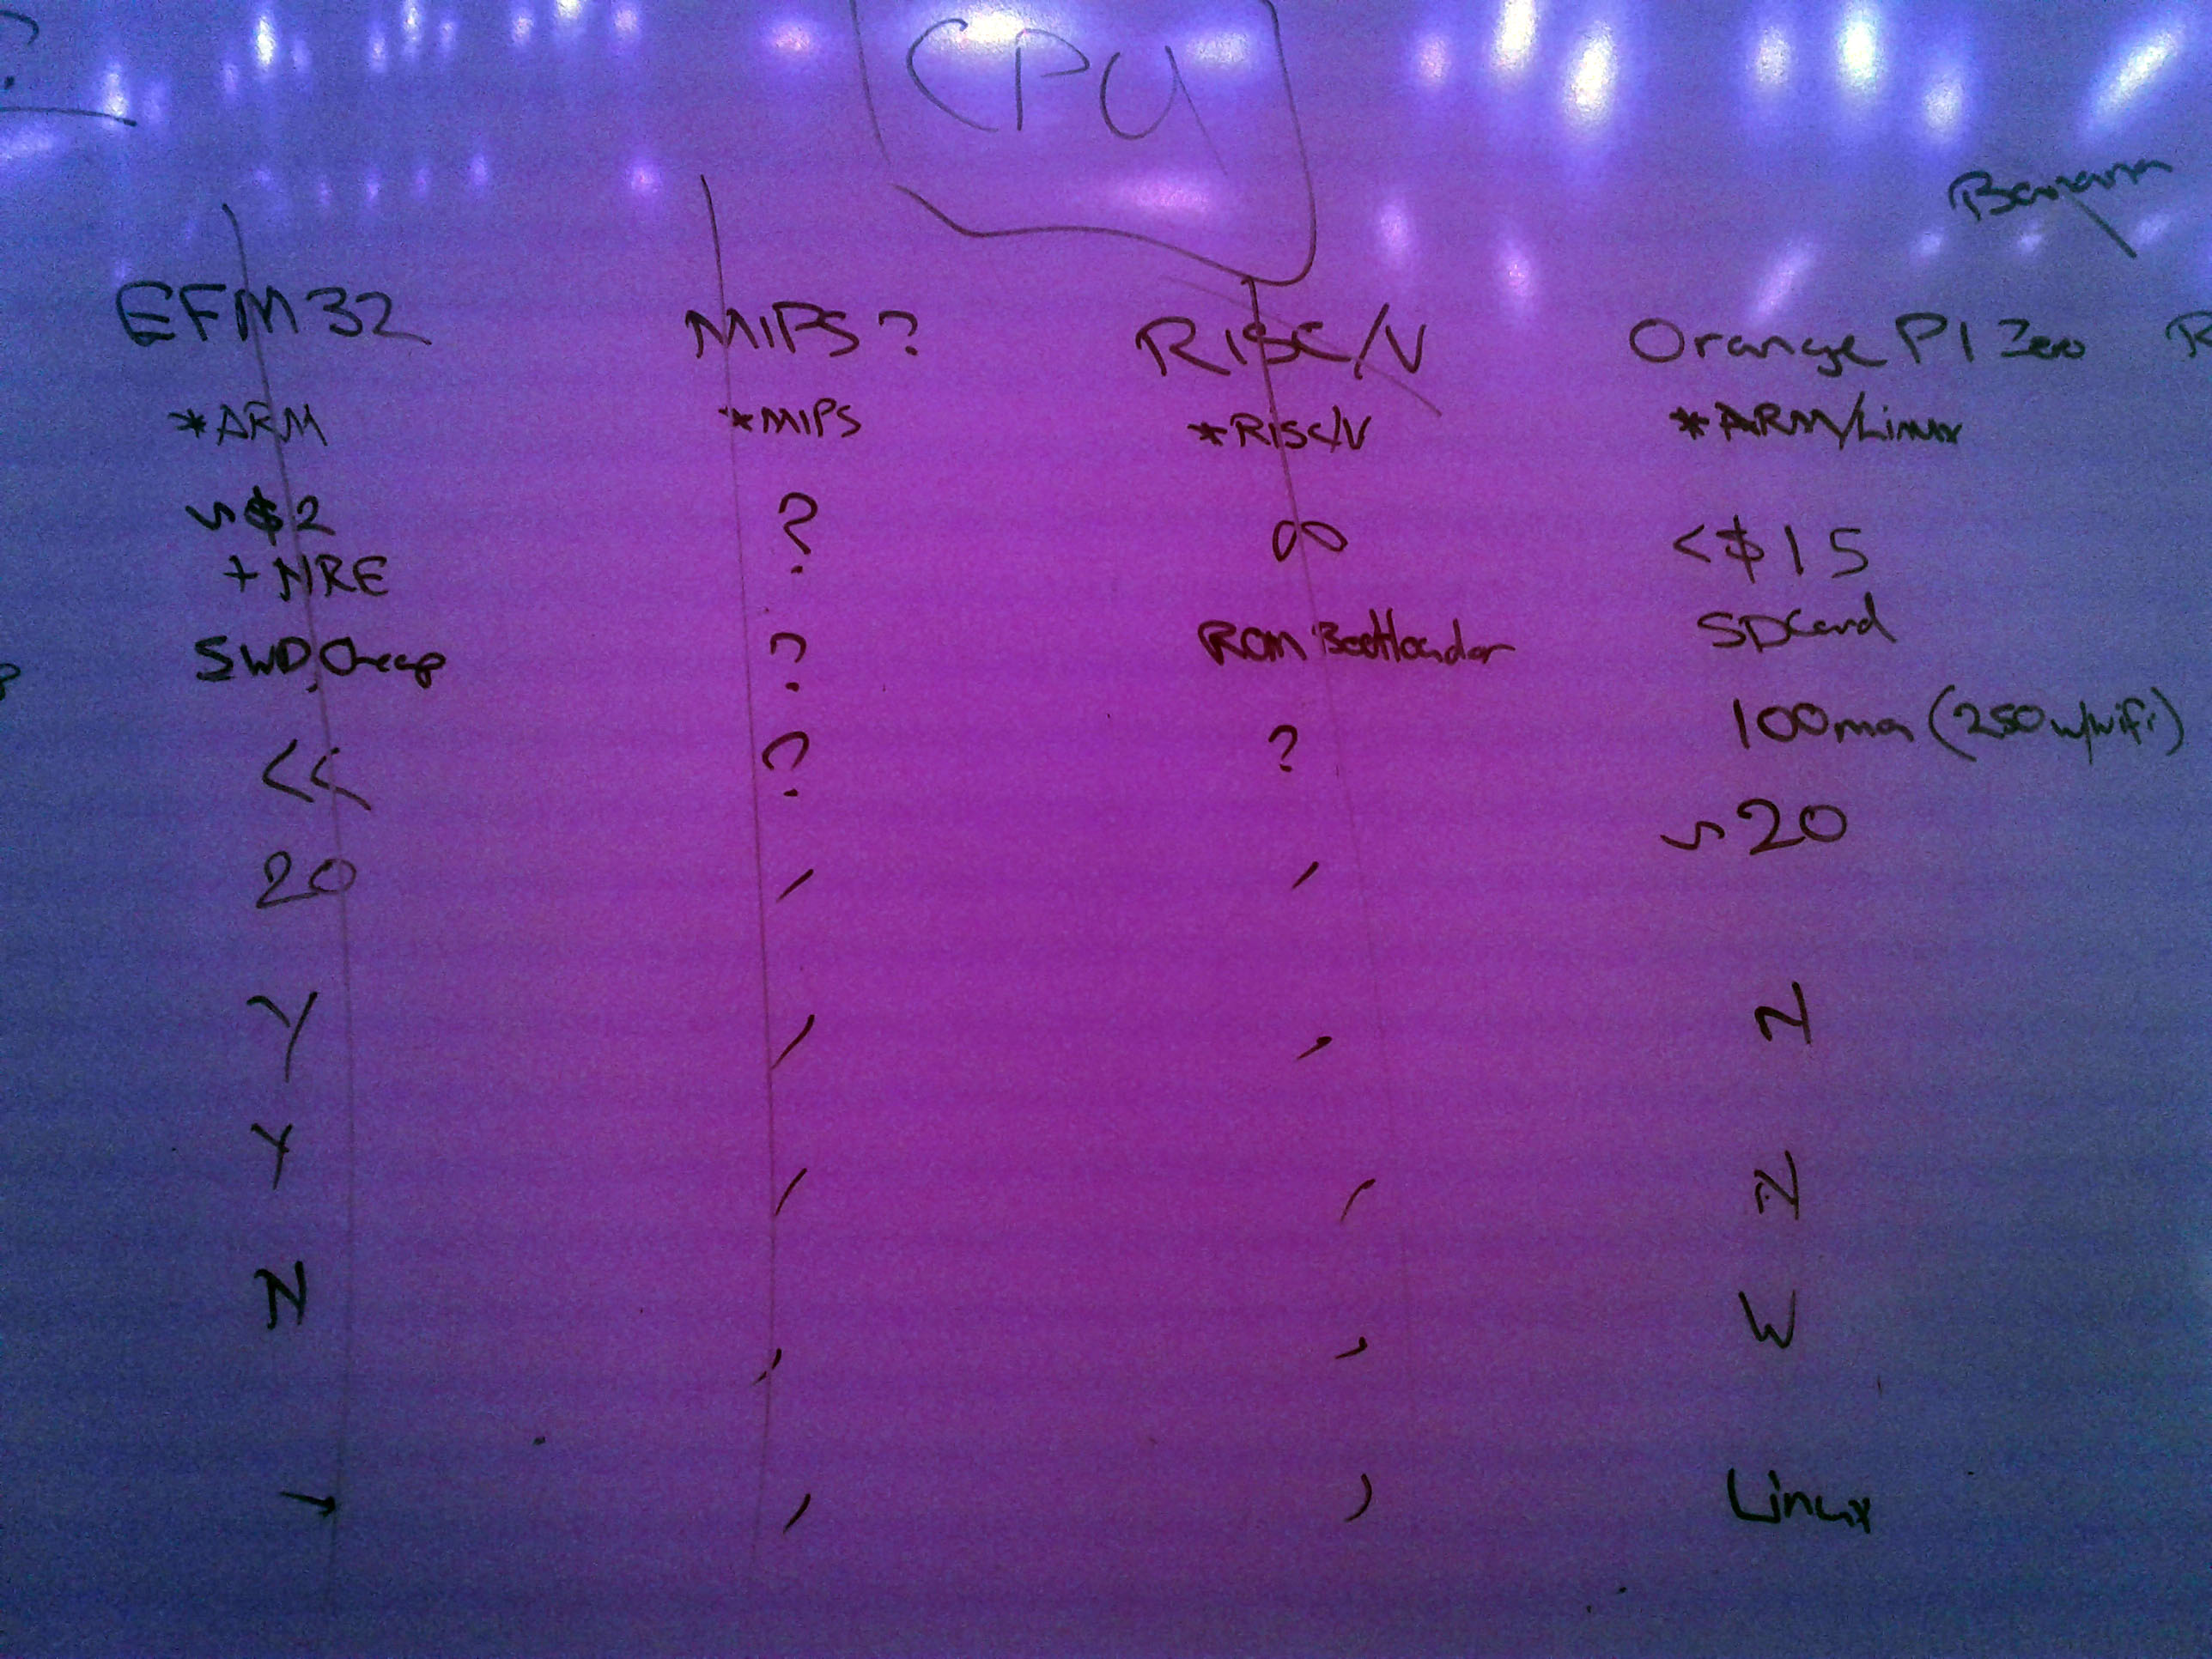 CPU
Banana
EFM32 MIPS? RISC/V Orange PI Zero R
*ARM *MIPS *RISC/V *ARM/Linux
~$2 ? ∞ <$15
+NRE
SWD, Cheap ? ROM Bootloader SDCard
<< ? ? 100ma (250 w/wifi)
20 / / ~20
Y / / N
Y / / N
N / / W
/ / Linux